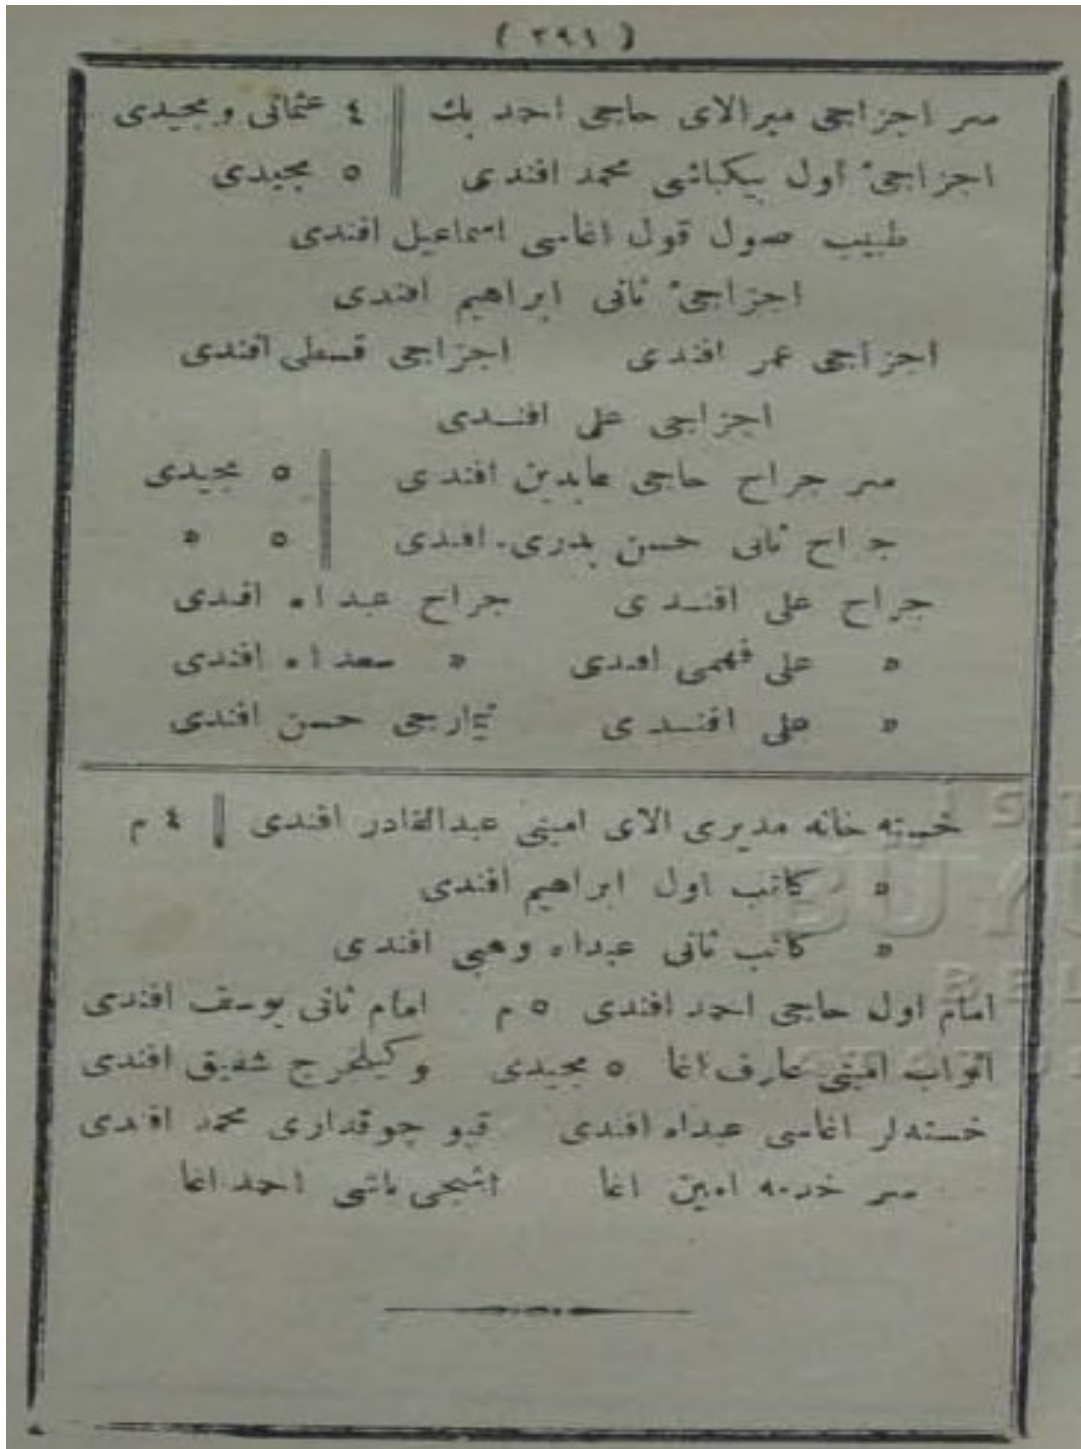 ( ٢٩١ )
سر اجزاجی میرالای حاجی احمد بك ٤ عثمانی و مجیدی
اجزاجئ اول بیكباشی محمد افندی ٥ مجیدی
طبیب صول قول اغاسی اسماعیل افندی
اجزاجئ ثانی ابراهیم افندی
اجزاجی عمر افندی اجزاجی قسطی افندی
اجزاجی علی افندی
سر جراح حاجی عابدین افندی ٥ مجیدی
جراح ثانی حسن بدری افندی ٥ »
جراح علی افندی جراح عبدالله افندی
» علی فهمی افندی » سعدالله افندی
» علی افندی تیمارجی حسن افندی
خسته خانه مدیری الای امینی عبدالقادر افندی ٤ م
» كاتب اول ابراهیم افندی
» كاتب ثانی عبدالله وهبی افندی
امام اول حاجی احمد افندی ٥ م امام ثانی یوسف افندی
اثواب امینی عارف اغا ٥ مجیدی وكیلخرج شفیق افندی
خسته‌لر اغاسی عبدالله افندی قپو چوقداری محمد افندی
سر خدمه امین اغا اشجی باشی احمد اغا